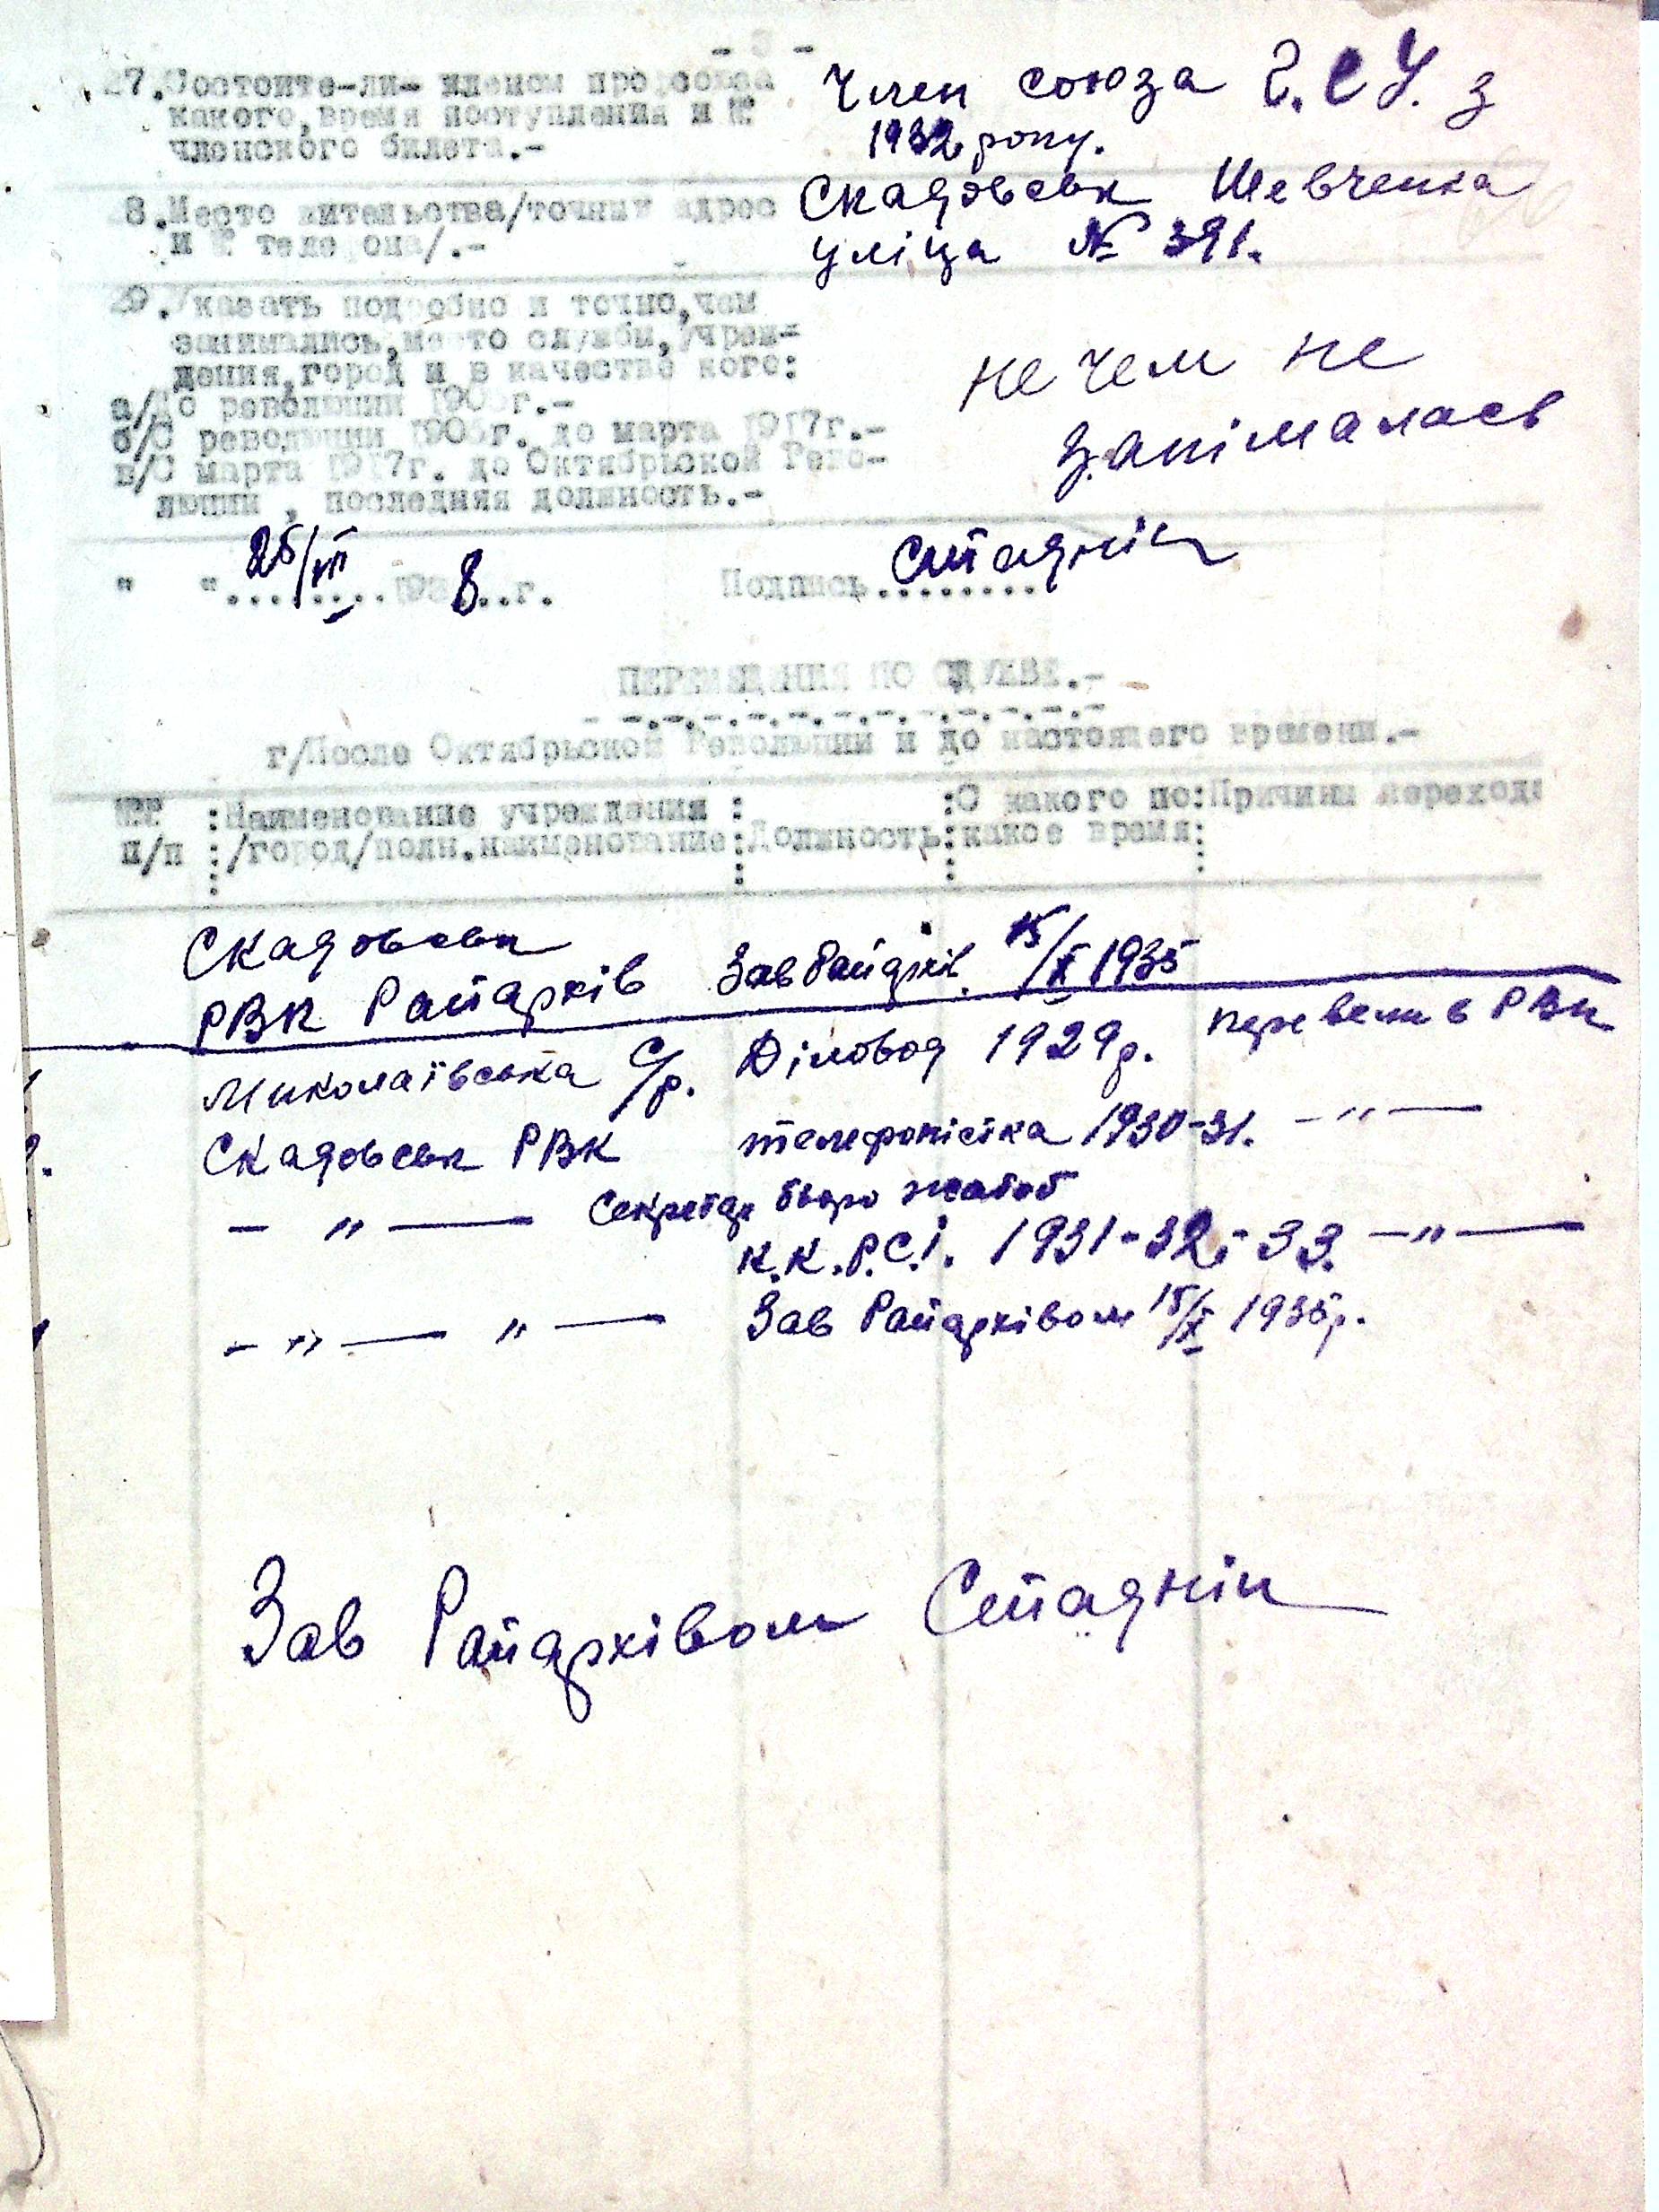 - 3 -
27. Состоите-ли- членом профсоюза
какого, время поступления и №
членского билета.-
Член союза Г.С.У. з
1932 року.
28. Место жительства/точный адрес
и № телефона/.-
Скадовськ Шевченка
уліца № 391.
29. Указать подробно и точно, чем
занимались, место службы, учреж-
дения, город и в качестве кого:
а/До революции 1905г.-
б/С революции 1905г. до марта 1917г.-
в/С марта 1917г. до Октябрьской Рево-
люции , последняя должность.-
не чем не
занімалась
" " 25/III 1938 г. Подпись Стаднік
ПЕРЕМЕЩЕНИЯ ПО СЛУЖБЕ.-
г/После Октябрьской Революции и до настоящего времени.-
№№ :Наименование учреждения : :С какого по:Причины перехода
п/п :/город/полн.наименование:Должность:какое время:
Скадовськ
РВК Райархів ЗавРайархів. 15/X 1935
Миколаївська С/р. Діловод 1929р. перевели в РВК
2. Скадовськ РВК телефоністка 1930-31. - " -
- " - Секретар бюро жалоб
К.К.Р.С.І. 1931-32і 33. - " -
- " - " - Зав Райархівом 15/X 1935р.
Зав Райархівом Стаднік